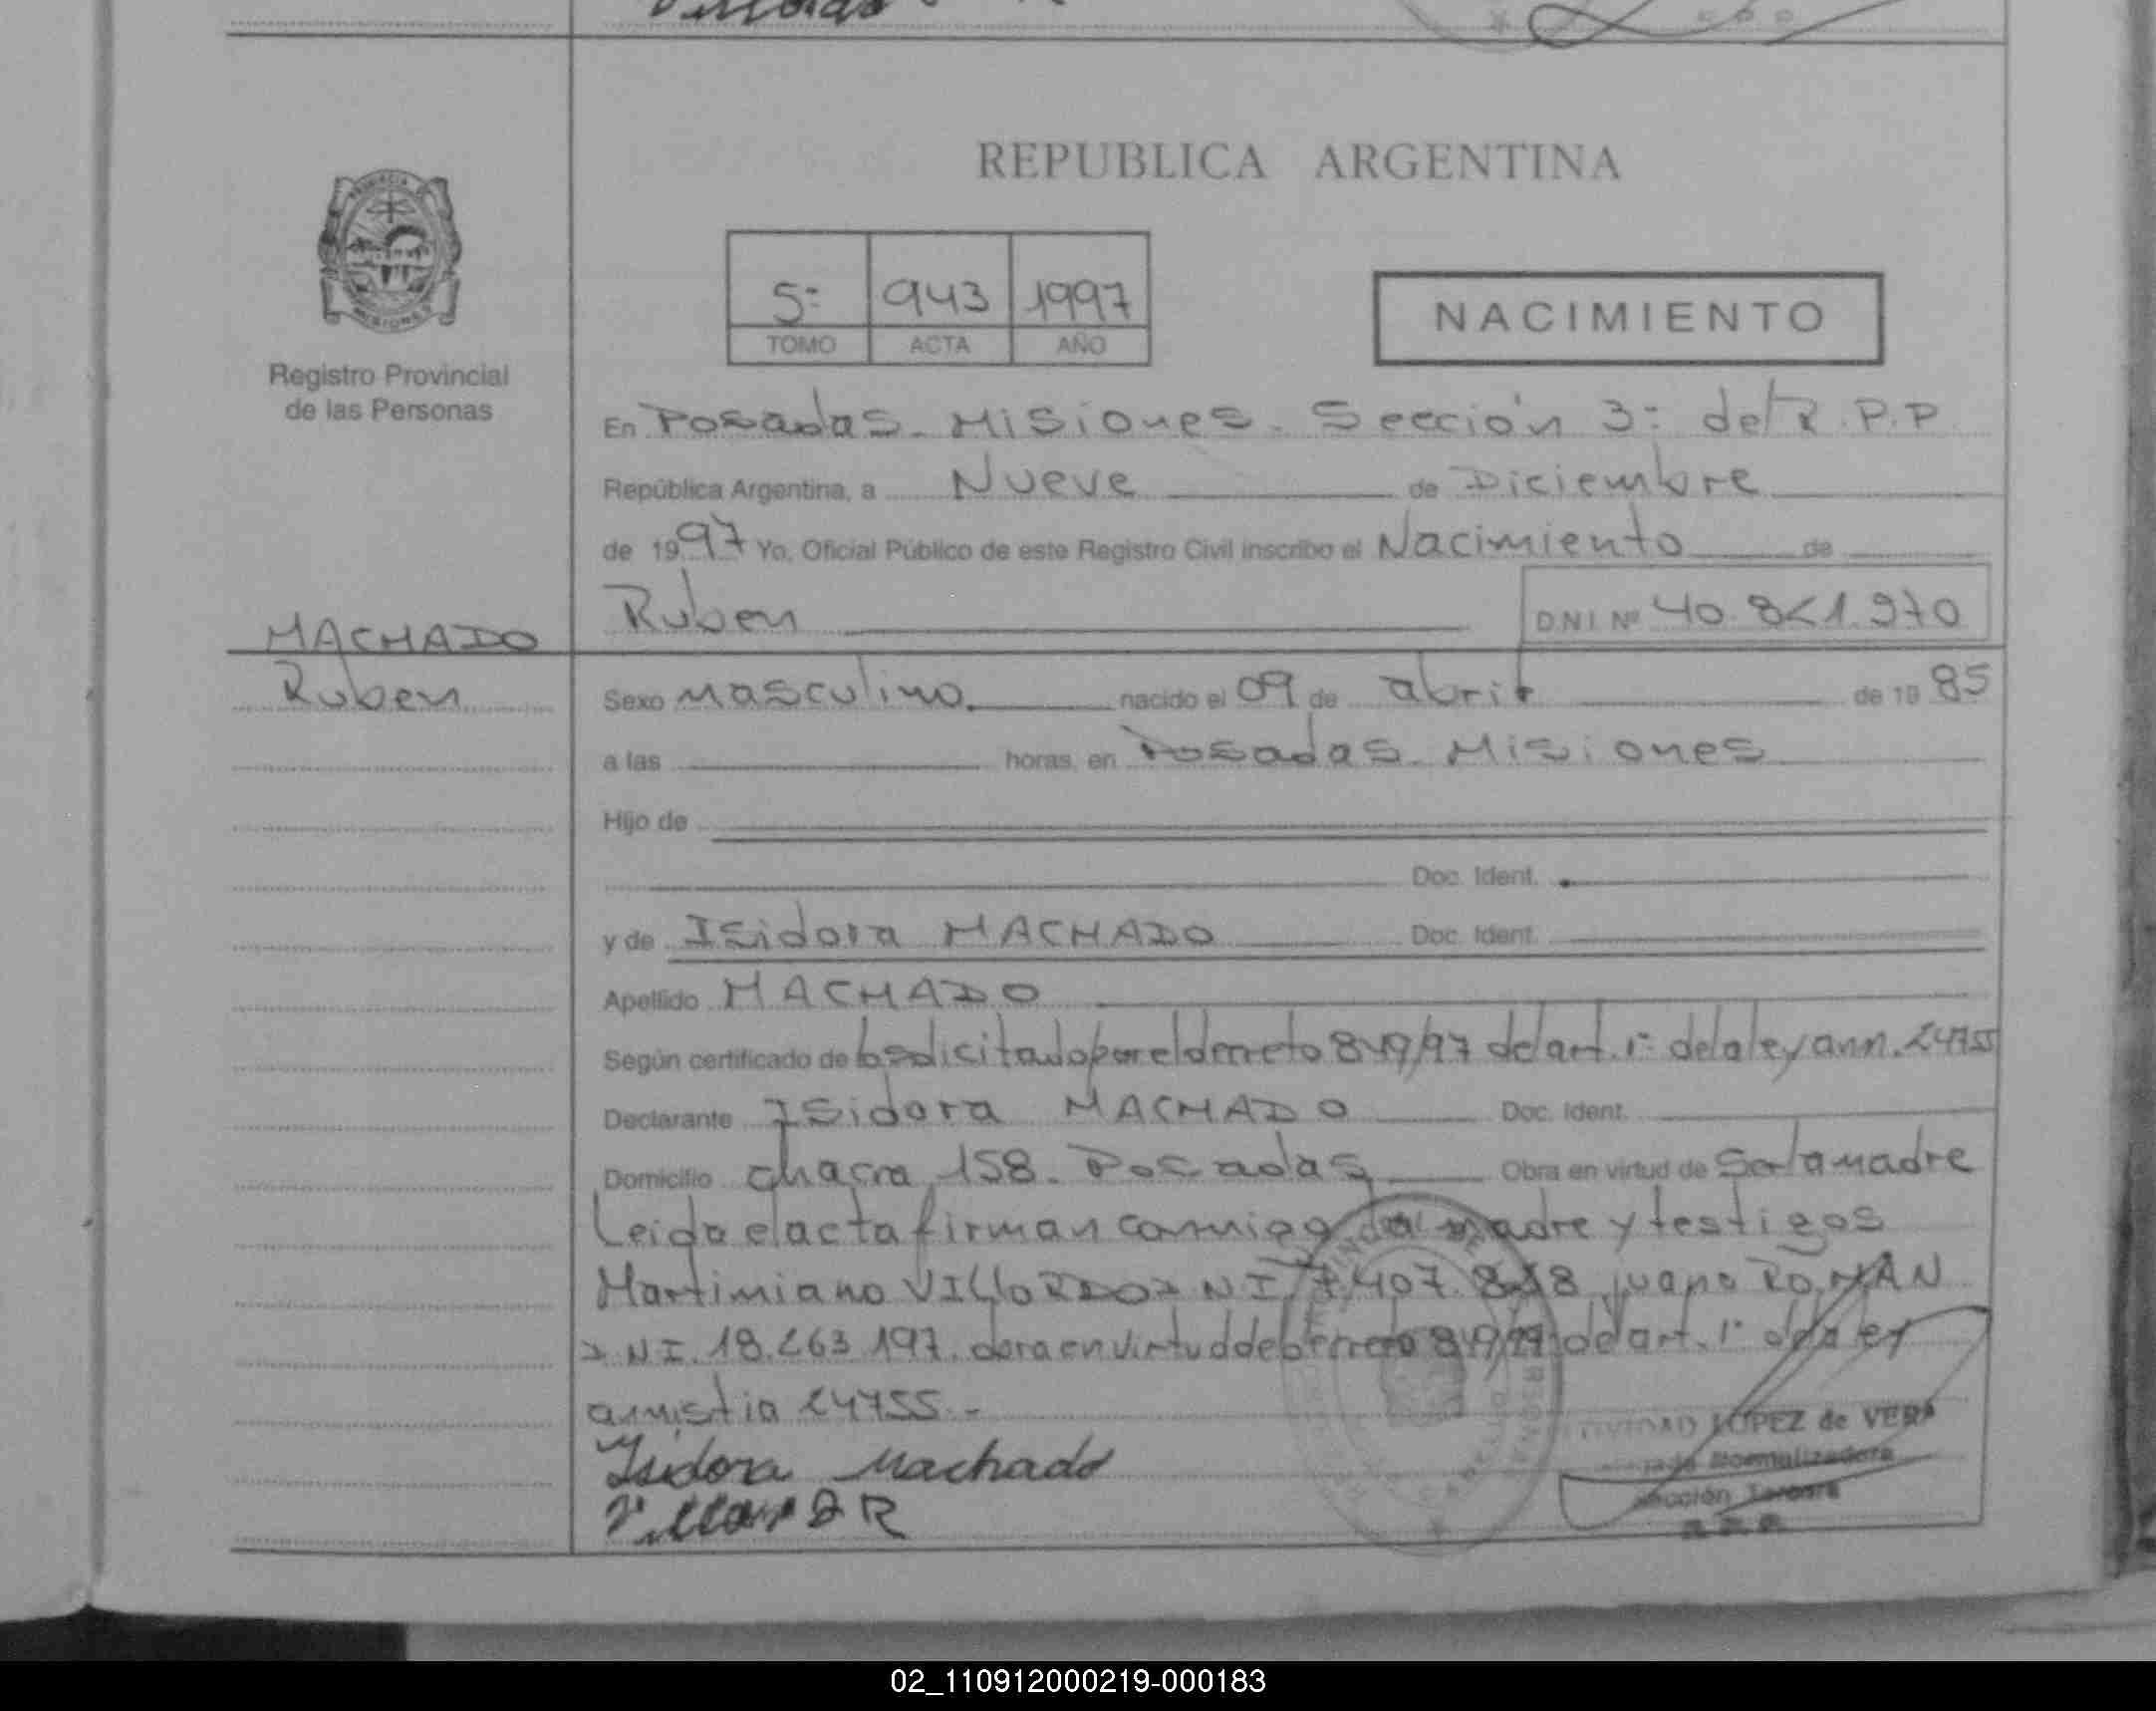 REPUBLICA ARGENTINA
5º 943 1997
TOMO ACTA AÑO
NACIMIENTO
Registro Provincial
de las Personas
En Posadas - Misiones - Sección 3º del R.P.P
República Argentina, a Nueve de Diciembre
de 1997 Yo, Oficial Público de este Registro Civil inscribo el Nacimiento de
Ruben D.N.I. Nº 40.821.970
MACHADO
Ruben
Sexo masculino nacido el 09 de abril de 1985
a las horas, en Posadas - Misiones
Hijo de
Doc. Ident.
y de Isidora MACHADO Doc. Ident.
Apellido MACHADO
Según certificado de lo solicitado por el decreto 849/97 del art. 1º de la ley amn. 24755
Declarante Isidora MACHADO Doc. Ident.
Domicilio chacra 158 - Posadas Obra en virtud de Ser la madre
Leida el acta firman conmigo la madre y testigos
Martimiano VILLORDO DNI 7.407.818 Juana ROMAN
DNI. 18.263.197. obra en virtud del decreto 849/97 del art. 1º de la ley
amistia 24755.-
Isidora Machado
LOPEZ de VERA
Normalizadora
Sección Tercera
02_110912000219-000183